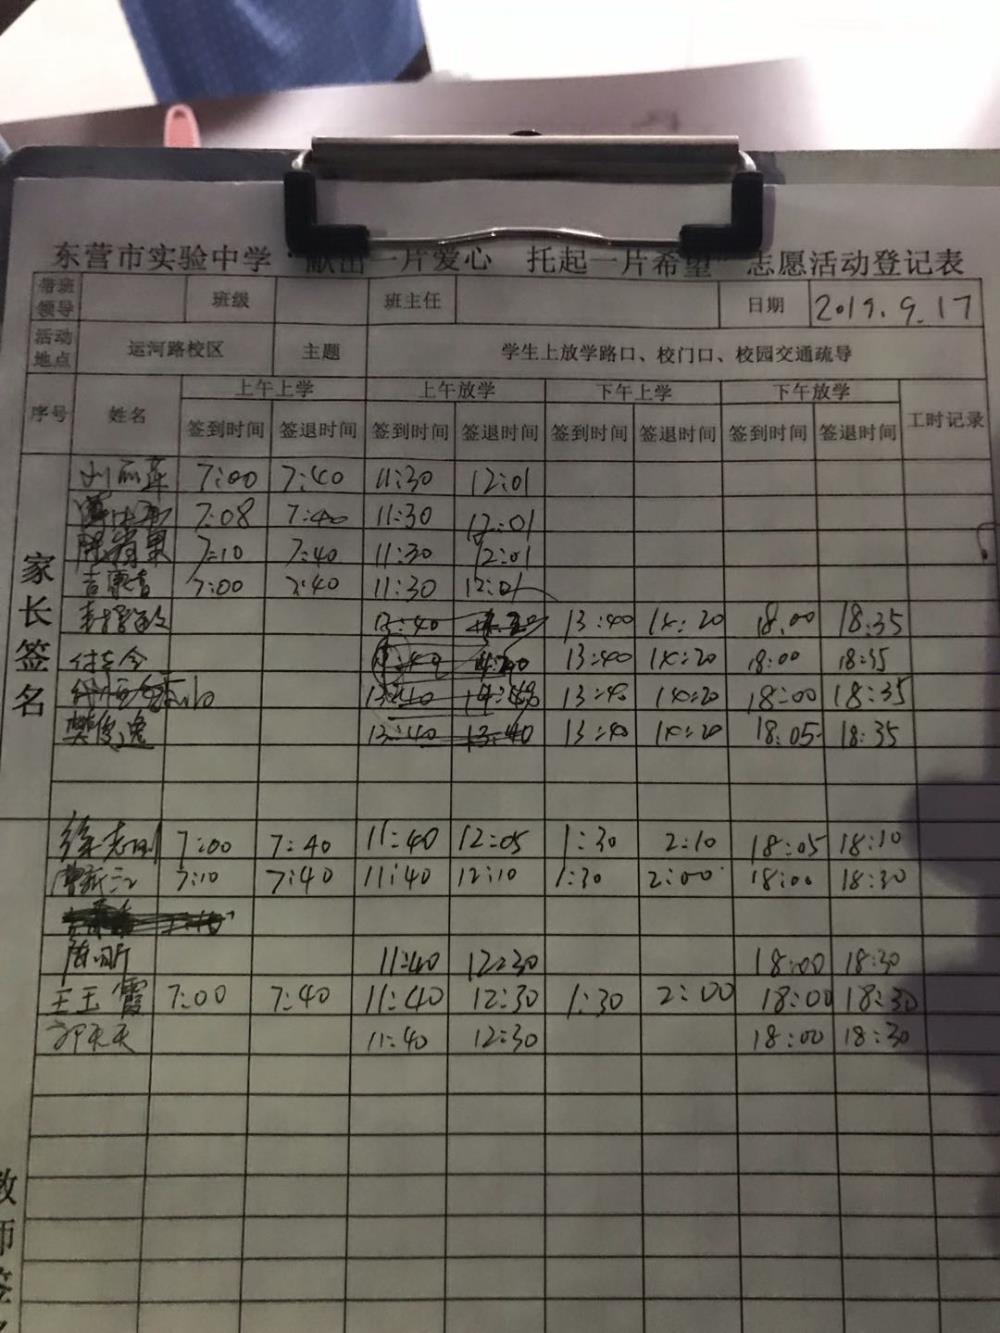 东营市实验中学“献出一片爱心 托起一片希望”志愿活动登记表
带班领导 班级 班主任 日期 2019.9.17
活动地点 运河路校区 主题 学生上放学路口、校门口、校园交通疏导
序号 姓名 上午上学 上午放学 下午上学 下午放学 工时记录
签到时间 签退时间 签到时间 签退时间 签到时间 签退时间 签到时间 签退时间
家长签名
7:00 7:40 11:30 12:01
7:08 7:40 11:30 12:01
7:10 7:40 11:30 12:01
吉康吉 7:00 7:40 11:30 12:01
13:40 13:40 14:20 18:00 18:35
13:40 14:20 18:00 18:35
13:40 14:20 18:00 18:35
樊俊逸 13:40 13:40 13:40 14:20 18:05 18:35
徐志刚 7:00 7:40 11:40 12:05 1:30 2:10 18:05 18:10
7:10 7:40 11:40 12:10 1:30 2:00 18:00 18:30
陈昕 11:40 12:30 18:00 18:30
王玉霞 7:00 7:40 11:40 12:30 1:30 2:00 18:00 18:30
郭天天 11:40 12:30 18:00 18:30
教师签名